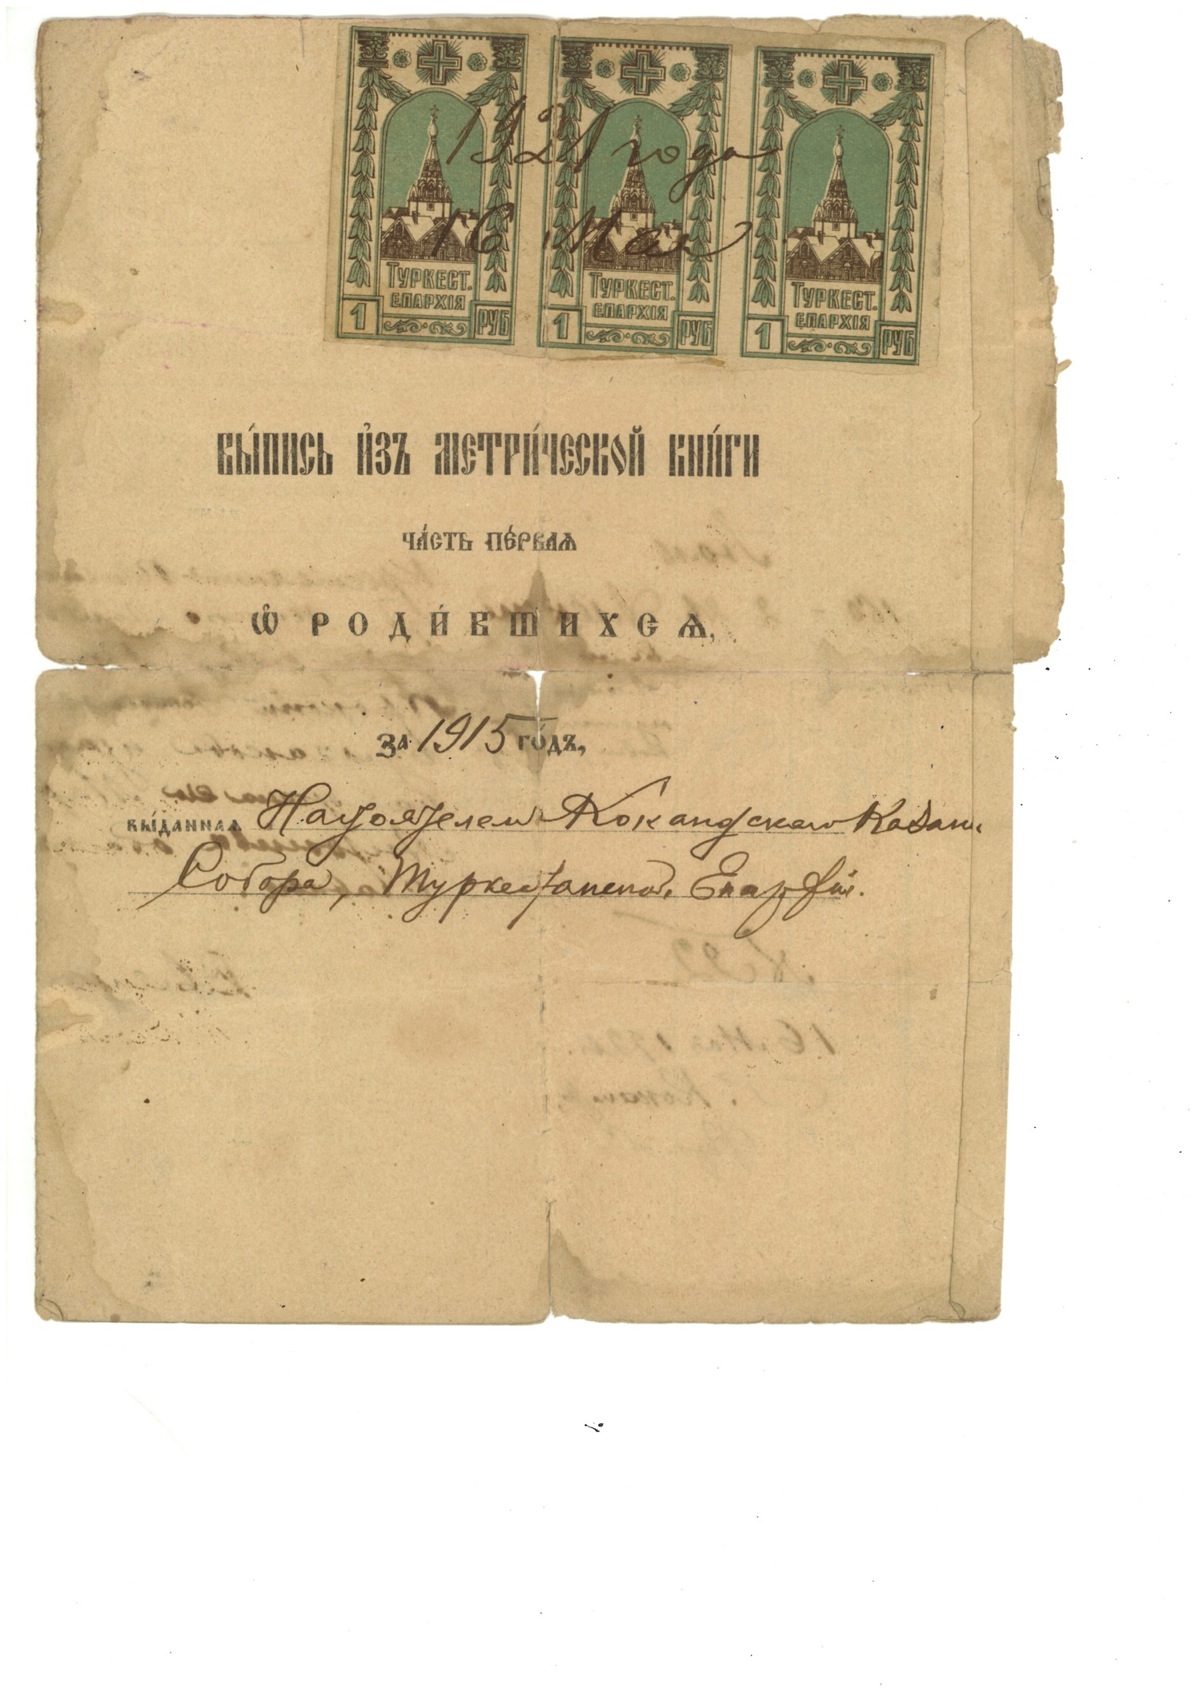 1921 года
16 Мая
ТУРКЕСТ. ЕПАРХІЯ 1 РУБ
ТУРКЕСТ. ЕПАРХІЯ 1 РУБ
ТУРКЕСТ. ЕПАРХІЯ 1 РУБ
ВЫ́ПИСЬ И҆ЗЪ МЕТРИ́ЧЕСКОЙ КНИ́ГИ
ЧА́СТЬ ПЕ́РВАѦ
Ѽ РОДИ́ВШИХСѦ,
ЗА 1915 ГО́ДЪ,
ВЫ́ДАННАѦ Настоятелем Кокандскаго Казан.
Собора, Туркестанской Епархіи.